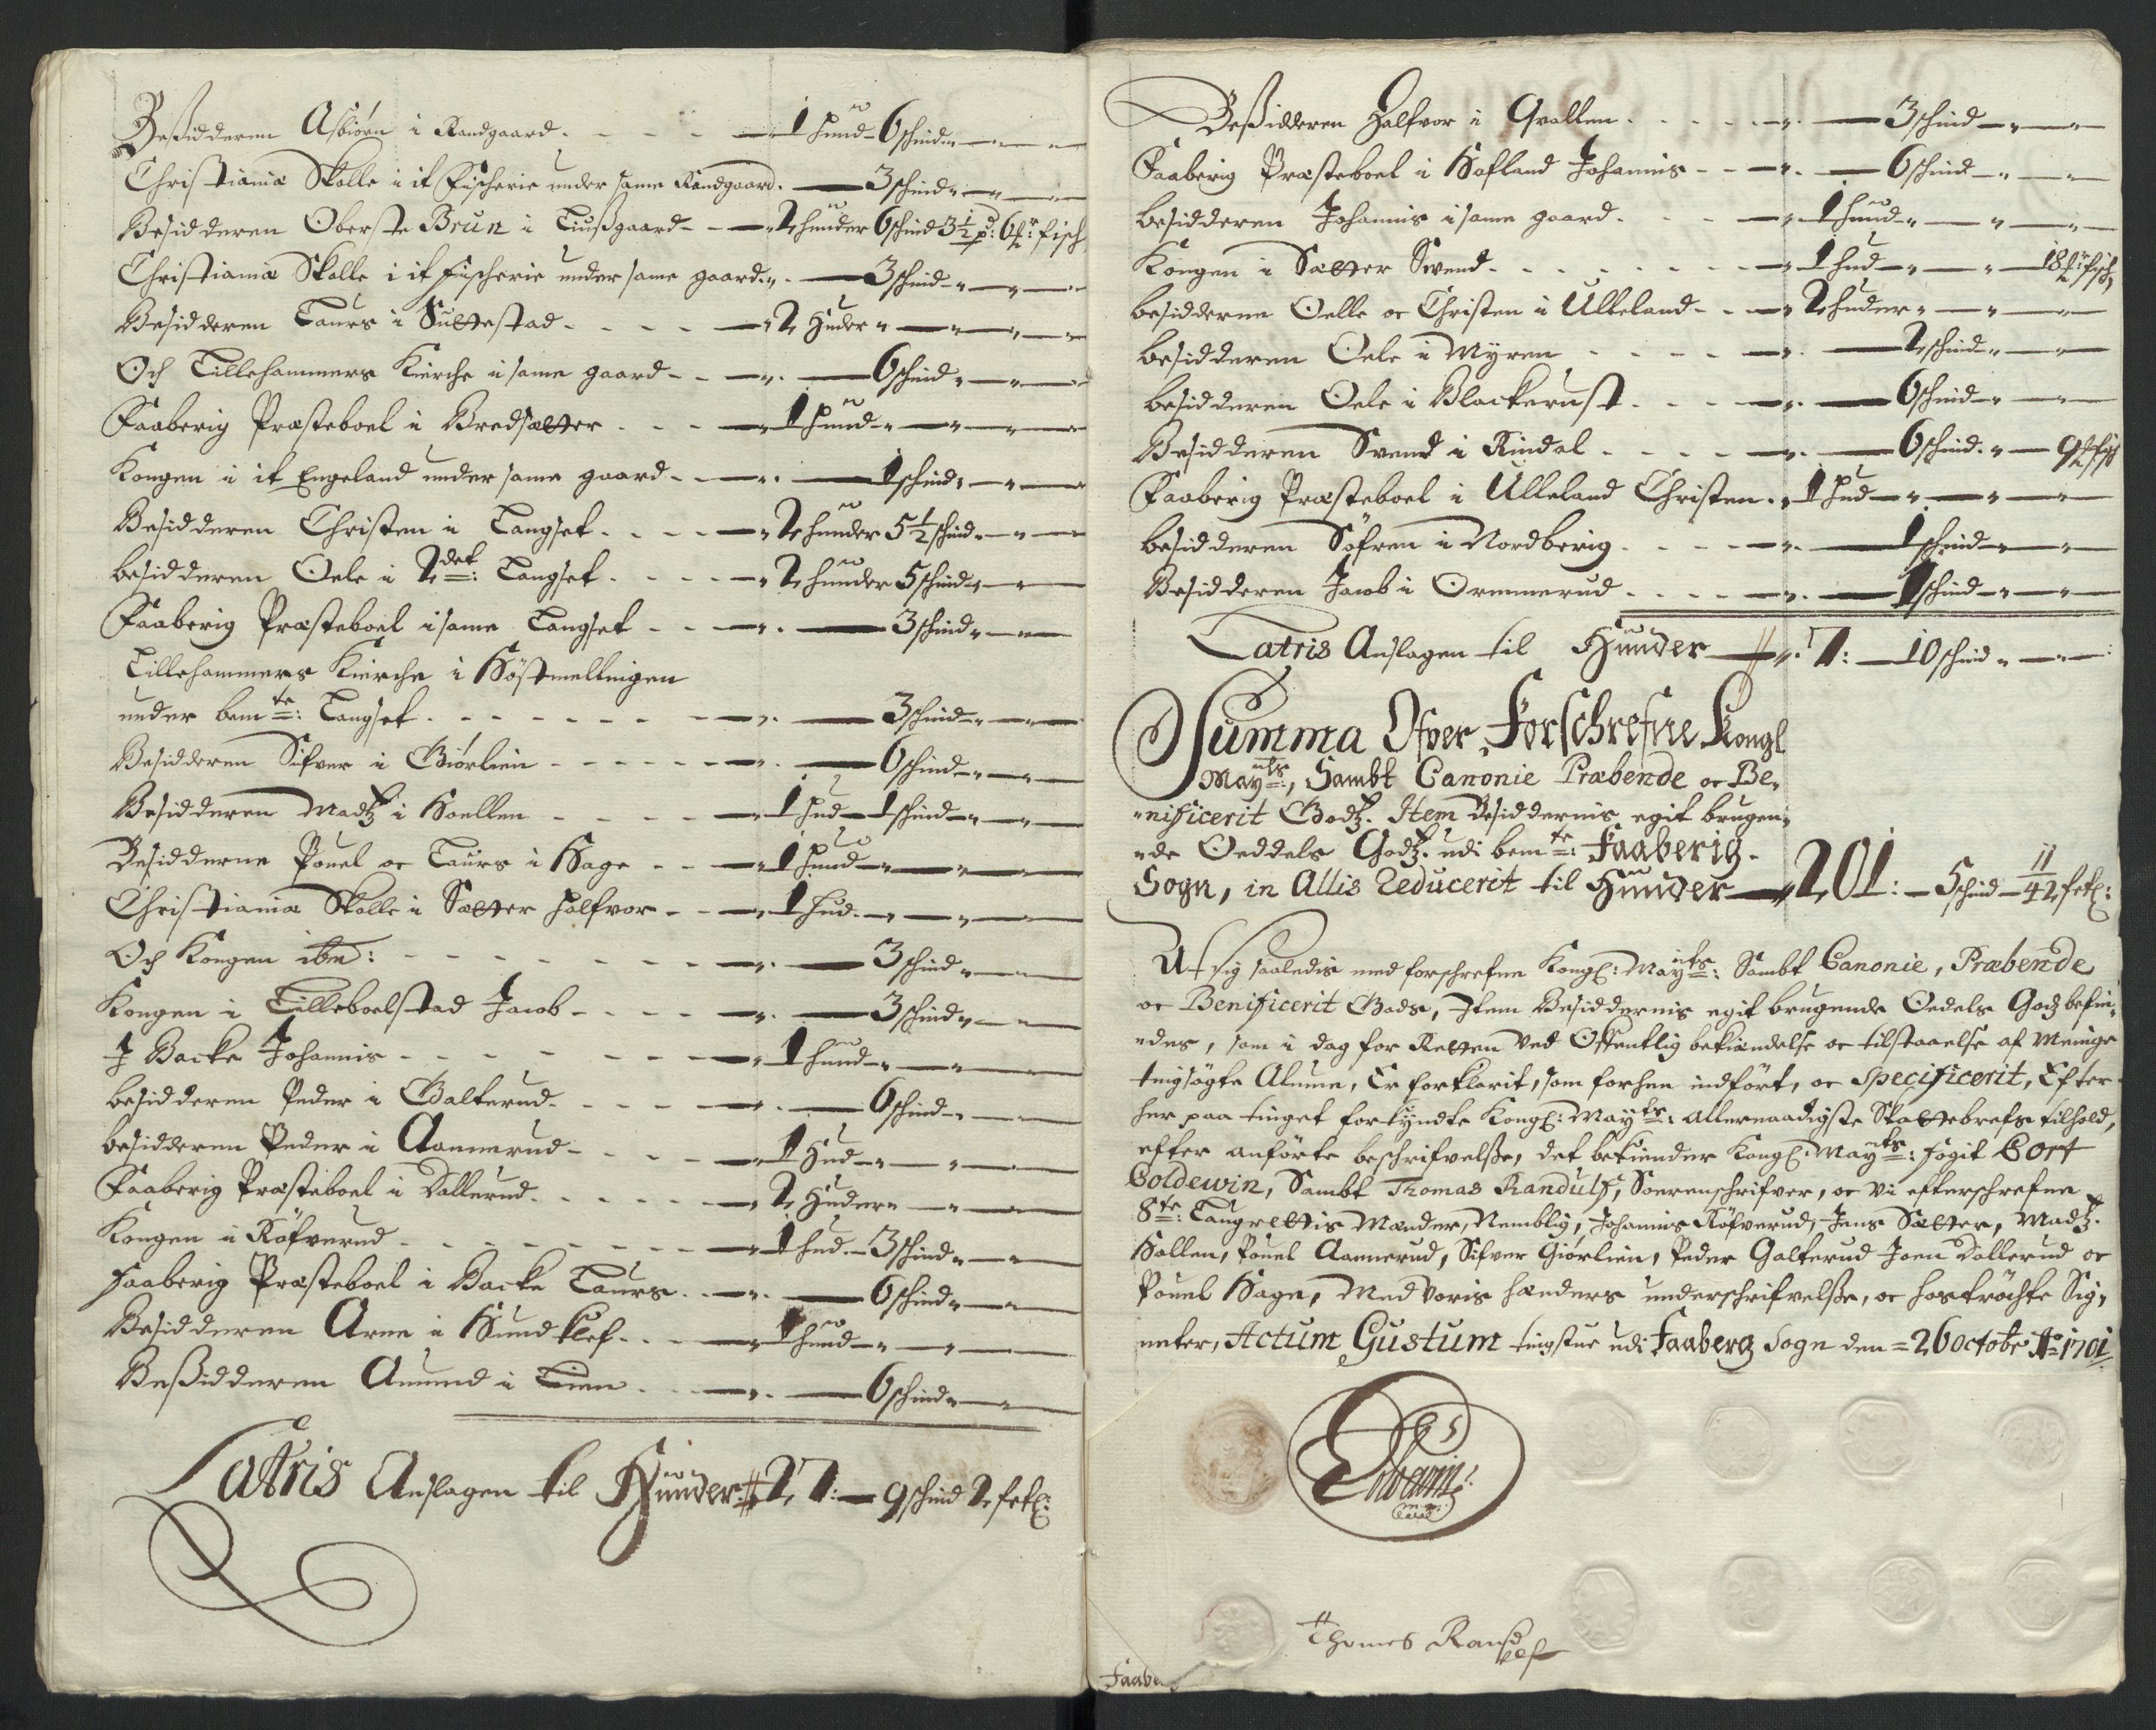 Beßidderen Asbiørn i Randgaard - 1 Hund 6 schind
Christianiæ Skolle i it Fischerie under same Randgaard. - 3 schind
Besidderen Oberste Brun i Liusgaard - 2 hunder 6 schind 3½ pd: 6 fr: fisch
Christianiæ Skolle i it fischerie under same gaard - 3 schind
Besidderen Laurs i Suttestad - 2 Huder
Och Lillehammers Kierche i same gaard - 6 schind
Faaberig Præsteboel i Bredsætter - 1 Hund
Kongen i it Engeland under same gaard - 1 schind
Besidderen Christen i Langset - 2 hunder 5½ schind
besidderen Oele i 2det: Langset - 2 hunder 5 schind
Faaberig Præsteboel i same Langset - 3 schind
Lillehammers Kierche i Høstmellingen
under bemte: Langset - 3 schind
Besidderen Sifver i Giørlien - 6 schind
Besidderen Madtz i Hoellen - 1 Hud 1 schind
Besidderne Pouel oc Laurs i Hage - 1 Hund
Christianiæ Skolle i Sætter Halfvor - 1 Hud
Och Kongen ibm: - 3 schind
Kongen i Lilleboelstad Jacob - 3 schind
J Backe Johannis - 1 hund
besidderen Peder i Galterud - 6 schind
besidderen Peder i Aannerud - 1 Hud
Faaberig Præsteboel i Dallerud - 2 Huder
Kongen i Røfverud - 1 hud 3 schind
Faaberig Præsteboel i Backe Laurs - 6 schind
Besidderen Arne i Hundklef - 1 hund
Beßidderen Amund i Lien - 6 schind
Latris Anslagen til Hunder 27: 9 schind 2 setl:
Beßidderen Halfvor i Qvallen - 3 schind
Faaberig Præsteboel i Hafland Johannis - 6 schind
besidderen Johannis i same gaard - 1 hund
Kongen i Sætter Svend - 1 hud - 18 fr: fisch
besidderne Oelle oc Christen i Ulleland - 2 huder
besidderen Oele i Myren - 2 schind
besidderen Oele i Blackerust - 6 schind
Besidderen Svend i Rindal - 6 schind - 9 fr fisch
Faaberig Præsteboel i Ulleland Christen - 1 Hud
besidderen Søfren i Nordberig - 1 schind
Besidderen Jacob i Ormmerud - 1 schind
Latris Anslagen til Hunder - 7: 10 schind
Summa Ofver Forschrefne Kongl
Mayts:, Sambt Canonie Præbende oc Be-
nificerit Godtz. Item Besiddernis egit brugen-
de Oeddels Godtz. udi bemte: Faaberig.
Sogn, in Allis Reducerit til Hunder - 201: - 5 schid - 11/42 setl:
At sig saaledis med forschrefne Kongl: Mayts: Sambt Canonie, Præbende
oc Benificerit Gods, Item Besiddernis egit brugende Oedels Godz befin-
des, som i dag for Retten ved Offentlig bekiendelse oc tilstaaelse af Meinge
tingsøgte Almue, Er forklarit, som forhen indført, oc Specificerit, Efter
her paa tinget forkyndte Kongl: Mayts: Allernaadigste Skattebrefs tilhold,
efter anførte beschrifvelße, det bekiender Kongl. Mayts: fogit Cort
Coldewin, Sambt Thomas Randulf, Sorenschrifver, oc vi efterschrefne
8te: Laugrettis Mænder, Nemblig, Johannis Røfverud, Jens Sætter, Madtz.
Hollen, Pouel Aannerud, Sifver Giørlien, Peder Galterud Joen Dallerud oc
Pouel Hage, Med voris hænders underschrifvelße, oc hostrøchte Sig-
neter, Actum Gustum tingstue udi Faaberg Sogn den = 26 octobr Ao 1701
Thomes Randulf
Faabe